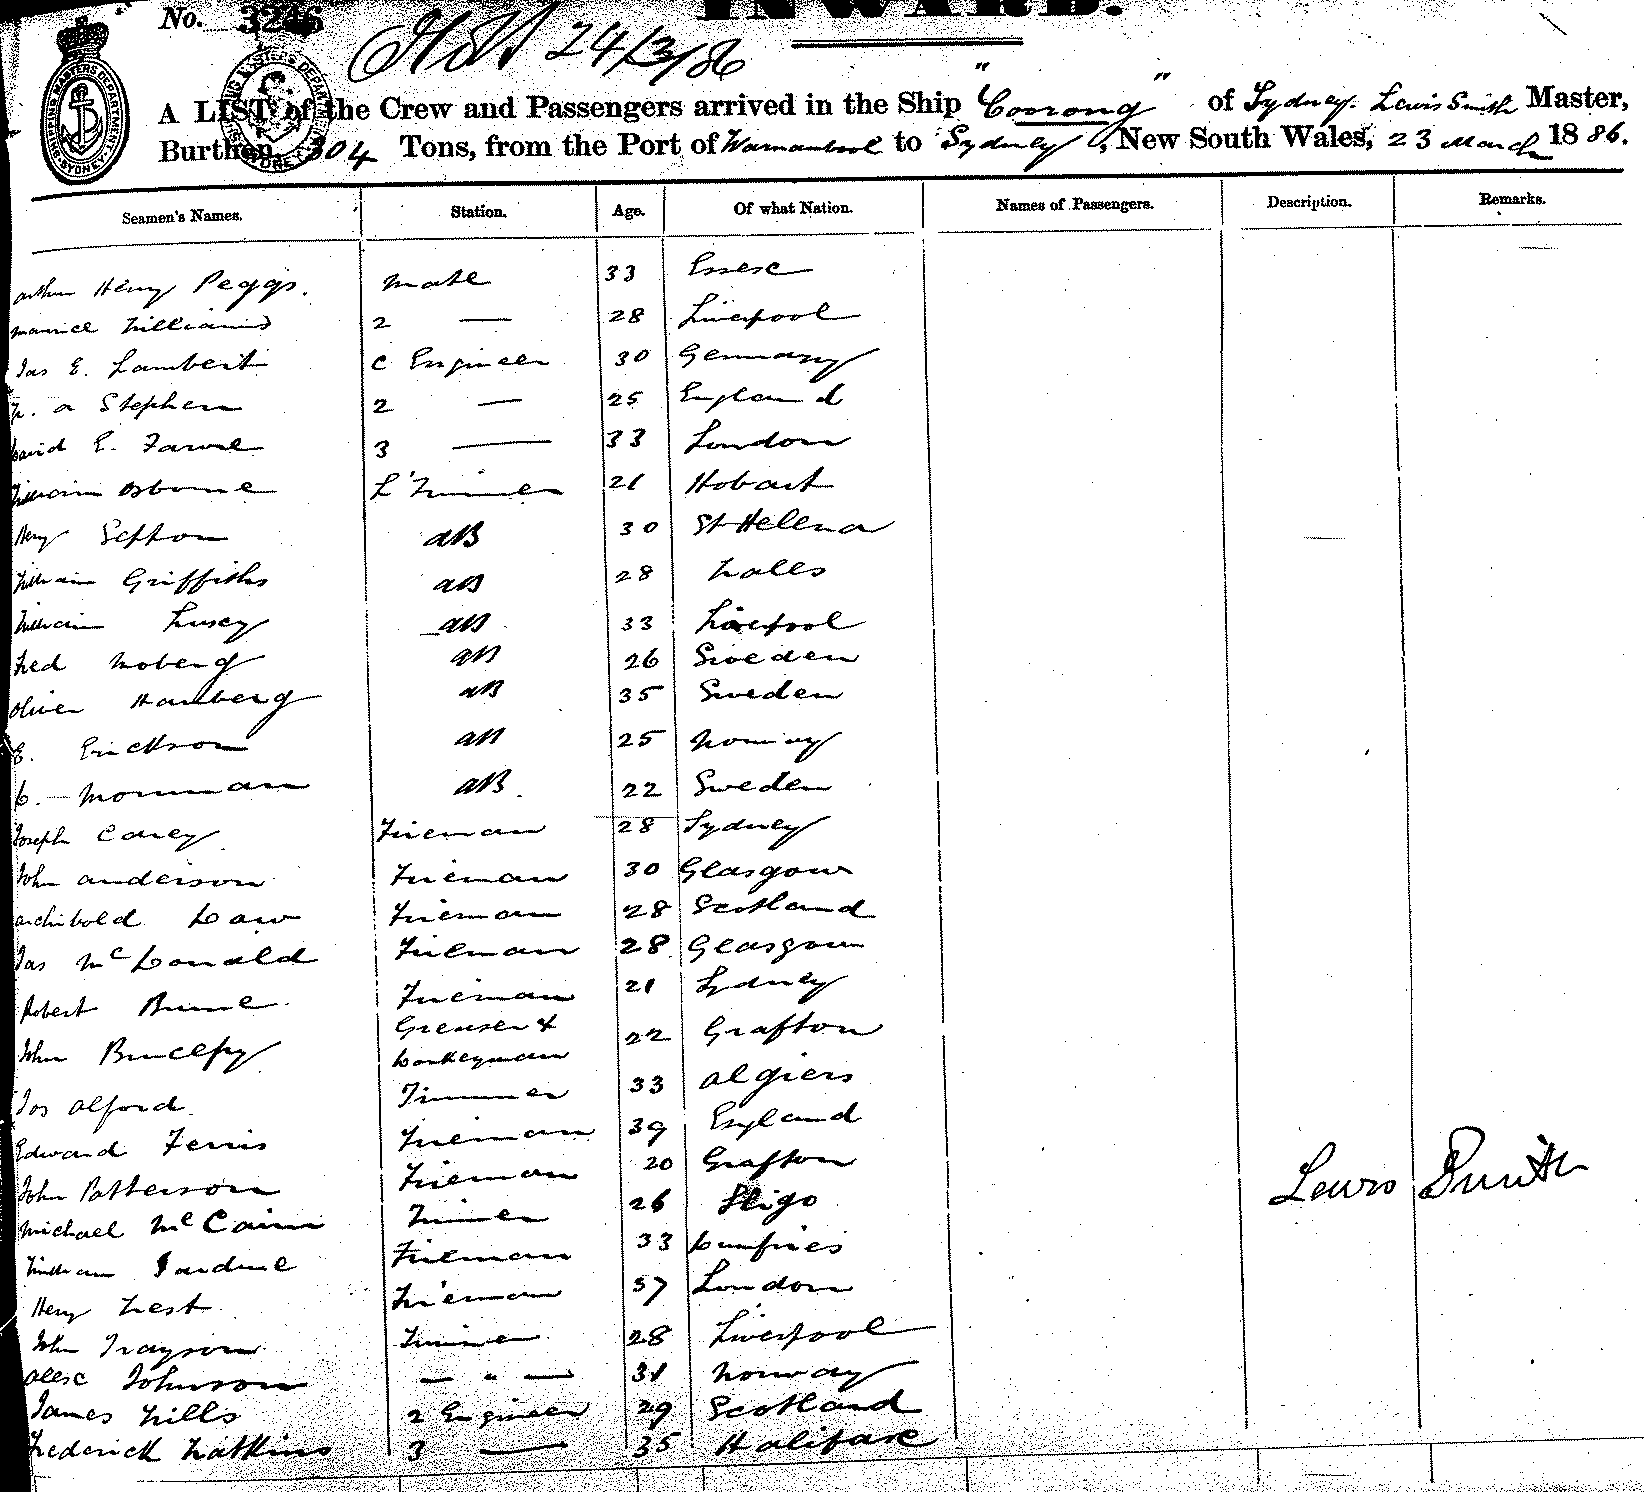 No. 3246
INWARD.
24/3/86
A LIST of the Crew and Passengers arrived in the Ship "Coorong" of Sydney. Lewis Smith Master,
Burthen 304 Tons, from the Port of Warnambool to Sydney, New South Wales, 23 March 1886.
Seamen's Names. Station. Age. Of what Nation. Names of Passengers. Description. Remarks.
Arthur Henry Peggs. Mate 33 Essex
Maurice Williams 2 — 28 Liverpool
Jas E. Lambert C Engineer 30 Germany
W. A Stephen 2 — 25 England
David E. 3 — 33 London
William Osborne L'Trimmer 21 Hobart
Hery Sefton AB 30 St Helena
William Griffiths AB 28 Wales
William Lusey AB 33 Liverpool
Fred Moberg AB 26 Sweden
Oliver Hamberg AB 35 Sweden
E. Erickson AB 25 Norway
C. — Morrman AB 22 Sweden
Joseph Carey Fireman 28 Sydney
John Anderson Fireman 30 Glasgow
Archibold Law Fireman 28 Scotland
Jas McDonald Fireman 28 Glasgow
Robert Fireman 21 Sydney
John Greaser & Donkeyman 22 Grafton
Jos Alford Trimmer 33 Algiers
Edward Ferris Fireman 39 England
John Patterson Fireman 20 Grafton
Michael McCann Trimmer 26 Sligo
William Jardine Fireman 33 Dumfries
Hery West Fireman 57 London
John Grayson Trimmer 28 Liverpool
Alexe Johnson — " — 31 Norway
James Wills 2 Engineer 29 Scotland
Frederick Watkins 3 — 35 Halifax
Lewis Smith